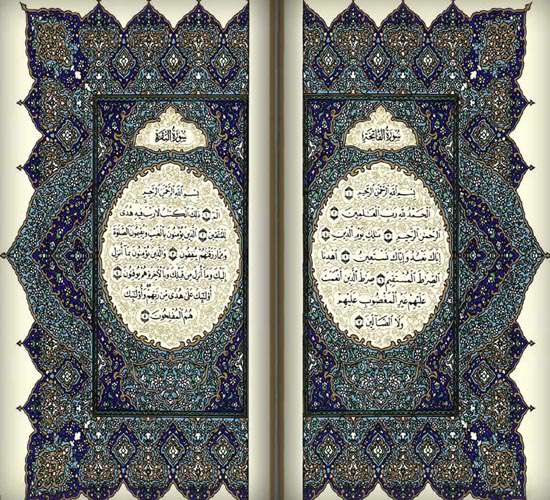 سورة الفاتحة
بسم الله الرحمن الرحيم
الحمد لله رب العالمين
الرحمن الرحيم مالك يوم الدين
إياك نعبد وإياك نستعين اهدنا
الصراط المستقيم صراط الذين أنعمت
عليهم غير المغضوب عليهم
ولا الضالين
سورة البقرة
بسم الله الرحمن الرحيم
الم ذلك الكتاب لا ريب فيه هدى
للمتقين الذين يؤمنون بالغيب ويقيمون الصلاة
ومما رزقناهم ينفقون والذين يؤمنون بما أنزل
إليك وما أنزل من قبلك وبالآخرة هم يوقنون
أولئك على هدى من ربهم وأولئك
هم المفلحون